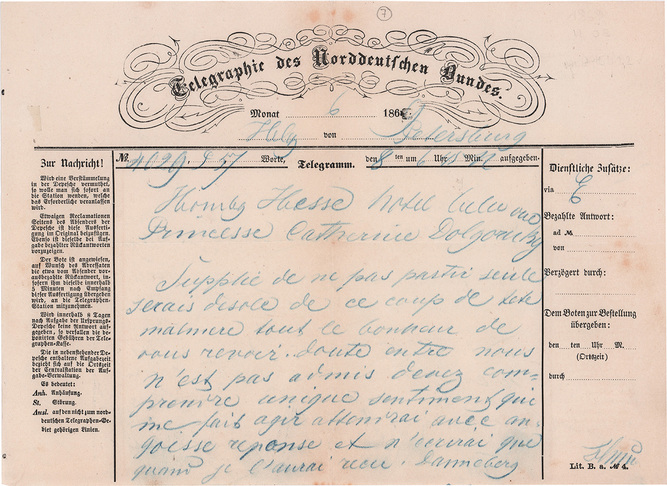 7
Telegraphie des Norddeutschen Bundes.
Monat 6 186
Hbg von Petersburg
Zur Nachricht!
Wird eine Verstümmelung
in der Depesche vermuthet,
so wolle man sich sofort an
die Station wenden, welche
das Erforderliche veranlassen
wird.
Etwaigen Reclamationen
Seitens des Absenders der
Depesche ist diese Ausfertigung
im Original beizufügen.
Ebenso ist dieselbe bei Aufgabe
bezahlter Rückantworten
vorzuzeigen.
Der Bote ist angewiesen,
auf Wunsch des Adressaten
die etwa vom Absender vorausbezahlte
Rückantwort, insofern
ihm dieselbe innerhalb
5 Minuten nach Empfang
dieser Ausfertigung übergeben
wird, an die Telegraphen-Station
mitzunehmen.
Wird innerhalb 8 Tagen
nach Aufgabe der Ursprungs-Depesche
keine Antwort aufgegeben,
so verfallen die deponirten
Gebühren der Telegraphen-Kasse.
Die in nebenstehender Depesche
enthaltene Aufgabezeit
bezieht sich auf die Ortszeit
der Centralstation der Aufgabe-Verwaltung.
Es bedeutet:
Anh. Anhäufung.
St. Störung.
Ausl. auf den nicht zum norddeutschen
Telegraphen-Gebiet
gehörigen Linien.
№ 4029 P 57 Worte. Telegramm. den 8 ten um Uhr Min. aufgegeben.
Hombg Hesse hotel
Princesse Catherine Dolgorouky
Supplie de ne pas partir seule
serais desole de ce coup de tete
malgre tout le bonheur de
vous revoir. doute entre nous
n'est pas admis venez com-
promire unique sentiment qui
me fait agir attendrai avec an-
goisse reponse et n'ecrirai que
quand je l'aurai recu. Danneberg
Dienstliche Zusätze:
via E
Bezahlte Antwort:
ad №
von
Verzögert durch:
Dem Boten zur Bestellung
übergeben:
den ten Uhr M.
(Ortszeit)
durch
Lit. B. a. № 4.